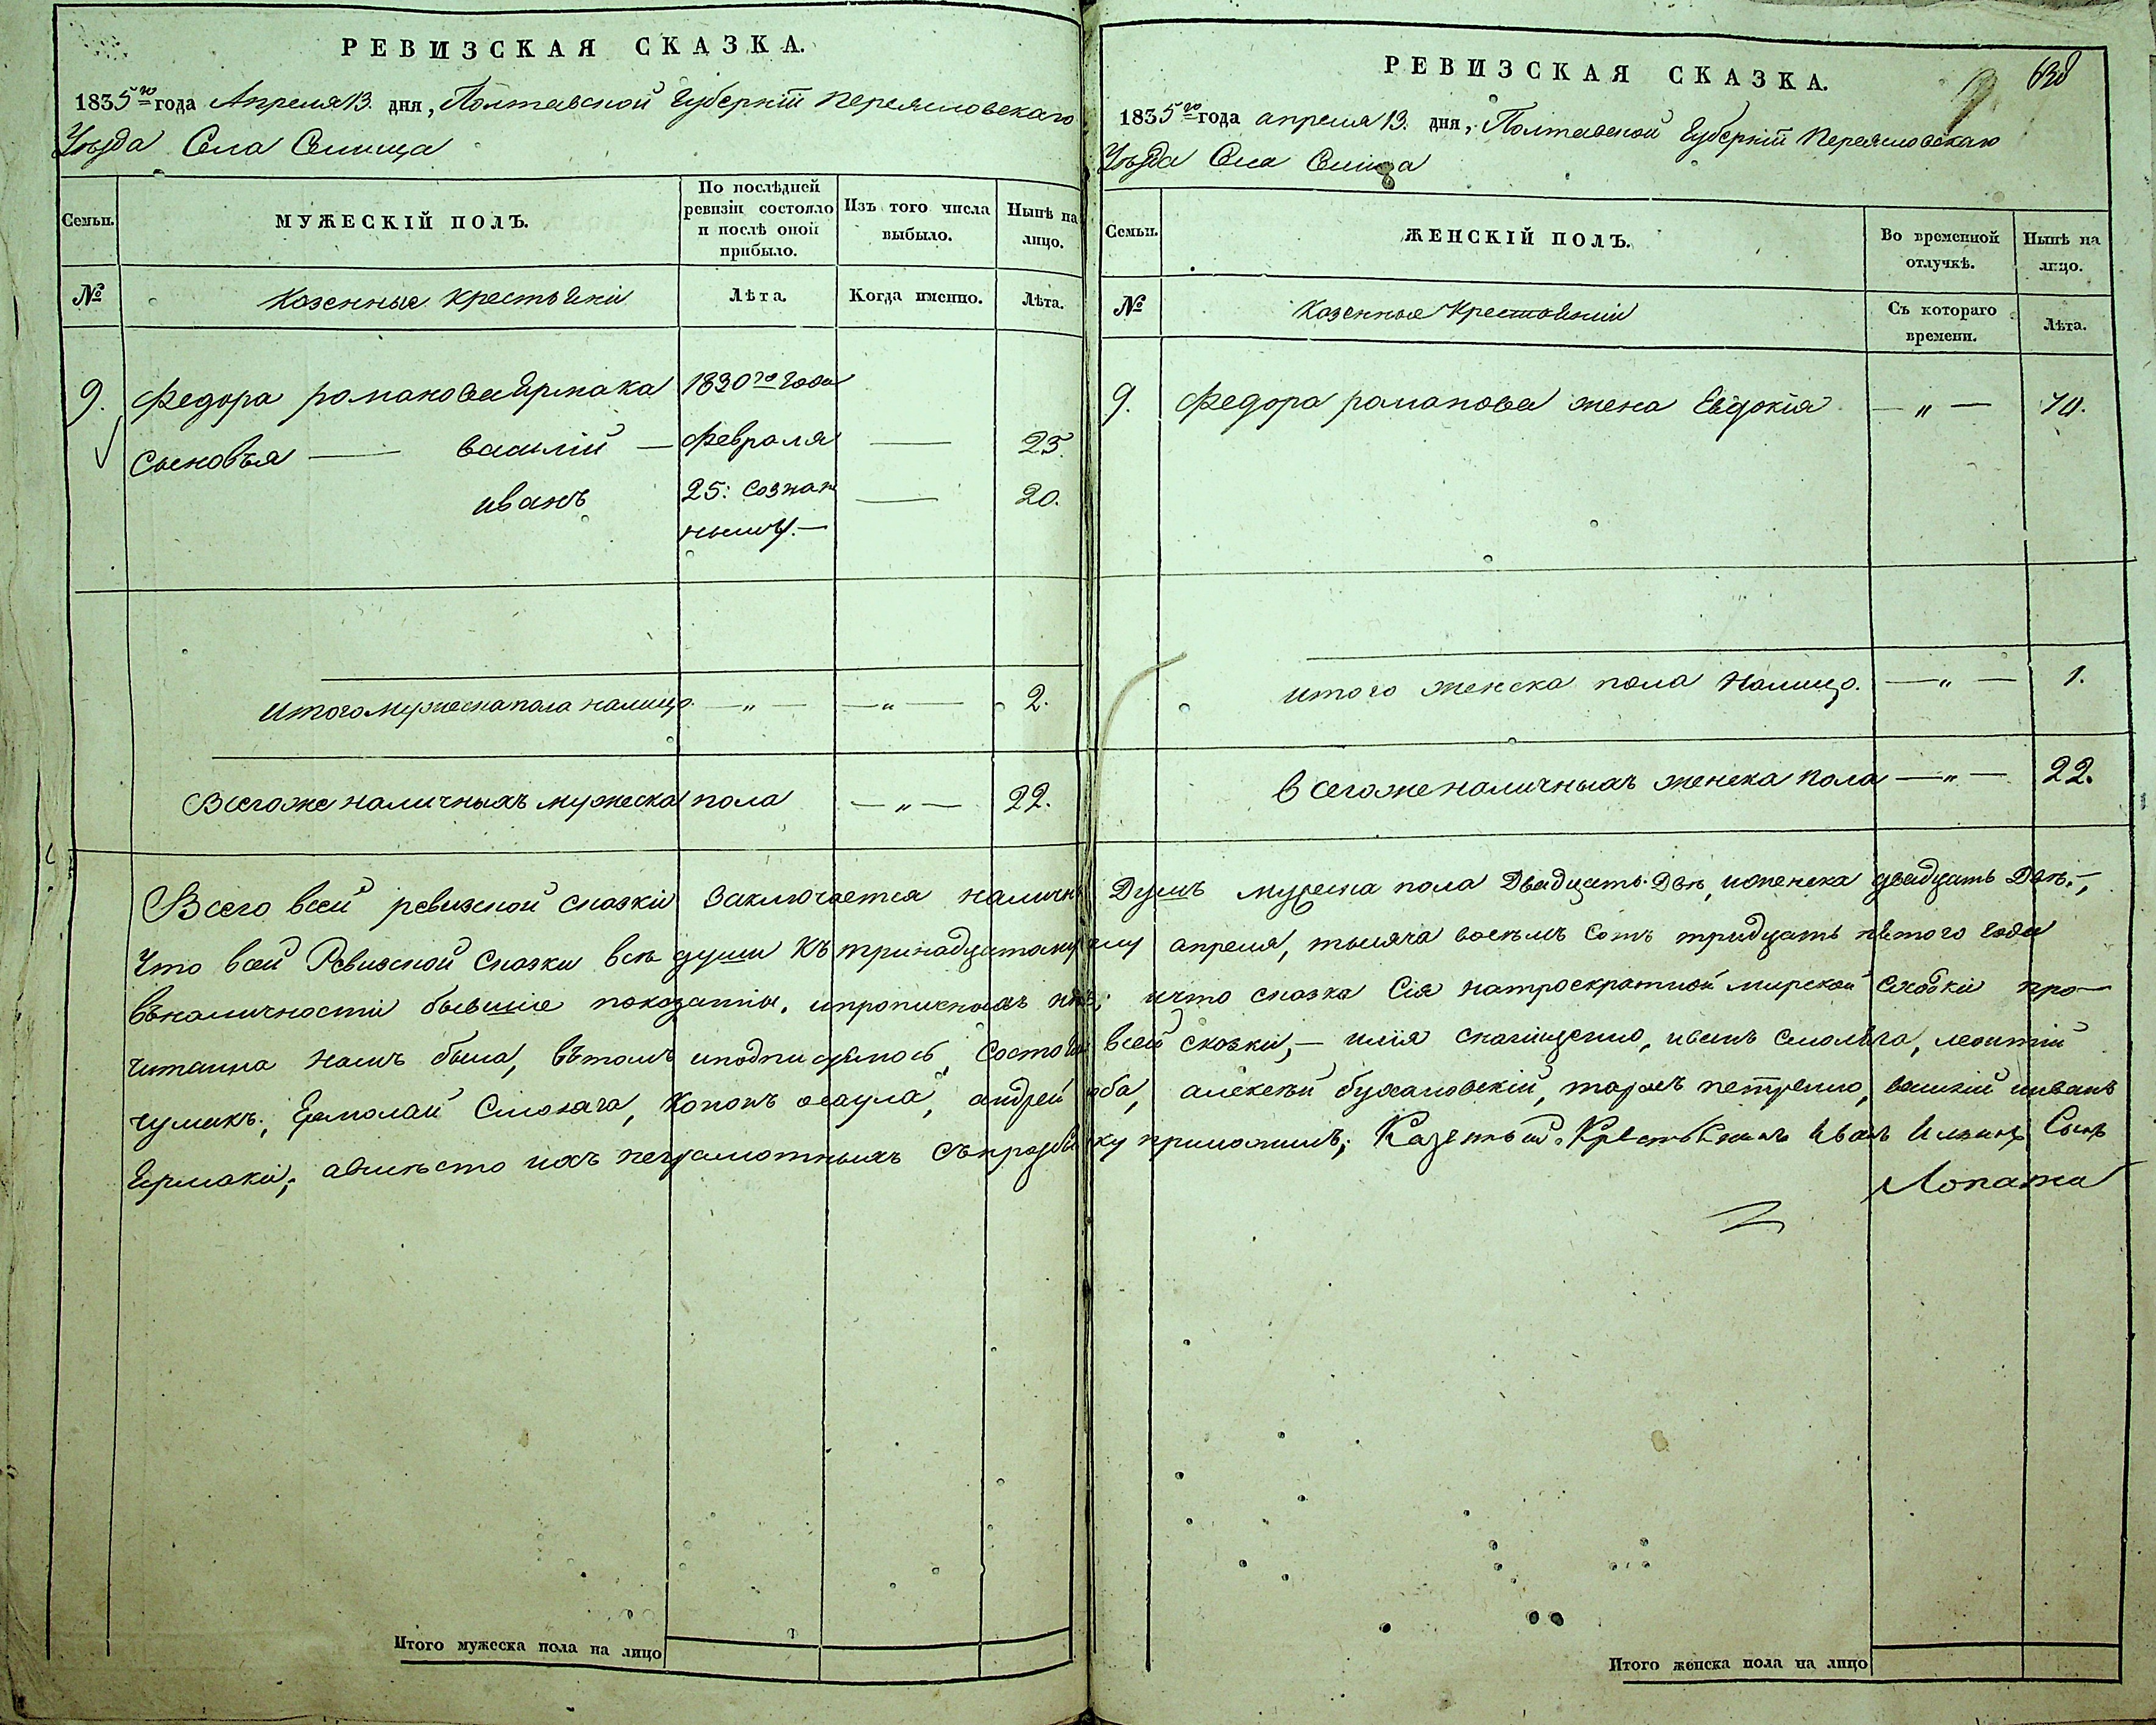 РЕВИЗСКАЯ СКАЗКА.
1835го года Апреля 13. дня, Полтавской Губерніи Переясловскаго
Уѣзда Села Селища
Семьи.
МУЖЕСКІЙ ПОЛЪ.
По послѣдней ревизіи состояло и послѣ оной прибыло.
Изъ того числа выбыло.
Нынѣ на лицо.
№
Казенные крестьяни
Лѣта.
Когда именно.
Лѣта.
9. Федора романова Ярмака 1830го года
Сыновъя — василій — февраля — 25.
иванъ 25: — 20.
итого мужеска пола налицо. — „ — — „ — 2.
Всегоже наличныхъ мужеска пола — „ — 22.
Итого мужеска пола на лицо
РЕВИЗСКАЯ СКАЗКА.
1835го года апреля 13. дня, Полтавской Губерніи Переясловскаго
Уѣзда Села Селища
Семьи.
ЖЕНСКІЙ ПОЛЪ.
Во временной отлучкѣ.
Нынѣ на лицо.
№
Казенные Крестьяніи
Съ котораго времени.
Лѣта.
9. Федора романова жена Евдокія — „ —
итого женска пола налицо. — „ — 1.
всегоже наличныхъ женска пола — „ — 22.
Всего всей ревизской сказкіи заключается наличныхъ Душъ мужеска пола Двадцать Двѣ, иженска двадцать Двѣ.-,
Что всей Ревизской Сказки всѣ души Къ тринадцатому апреля, тысяча восемъ сотъ тридцать пятого года
въналичности бывшіе показанны, ипрописныхъ нѣтъ; ичто сказка Сія натроекратной мирской Сходкіи про-
читанна намъ была, вътомъ иподписуемось, Состоящіе всей сказки,- илія иванъ смоляга, леонтій
чумакъ, Ермолай Смоляга, Кононъ осаула, андрей алексѣй бухановскій, петренко, василій ииванъ
Ермаки; авмѣсто ихъ неграмотныхъ приложилъ; Казенный Крестьянинъ Иванъ Сынъ
Лопата
Итого женска пола на лицо